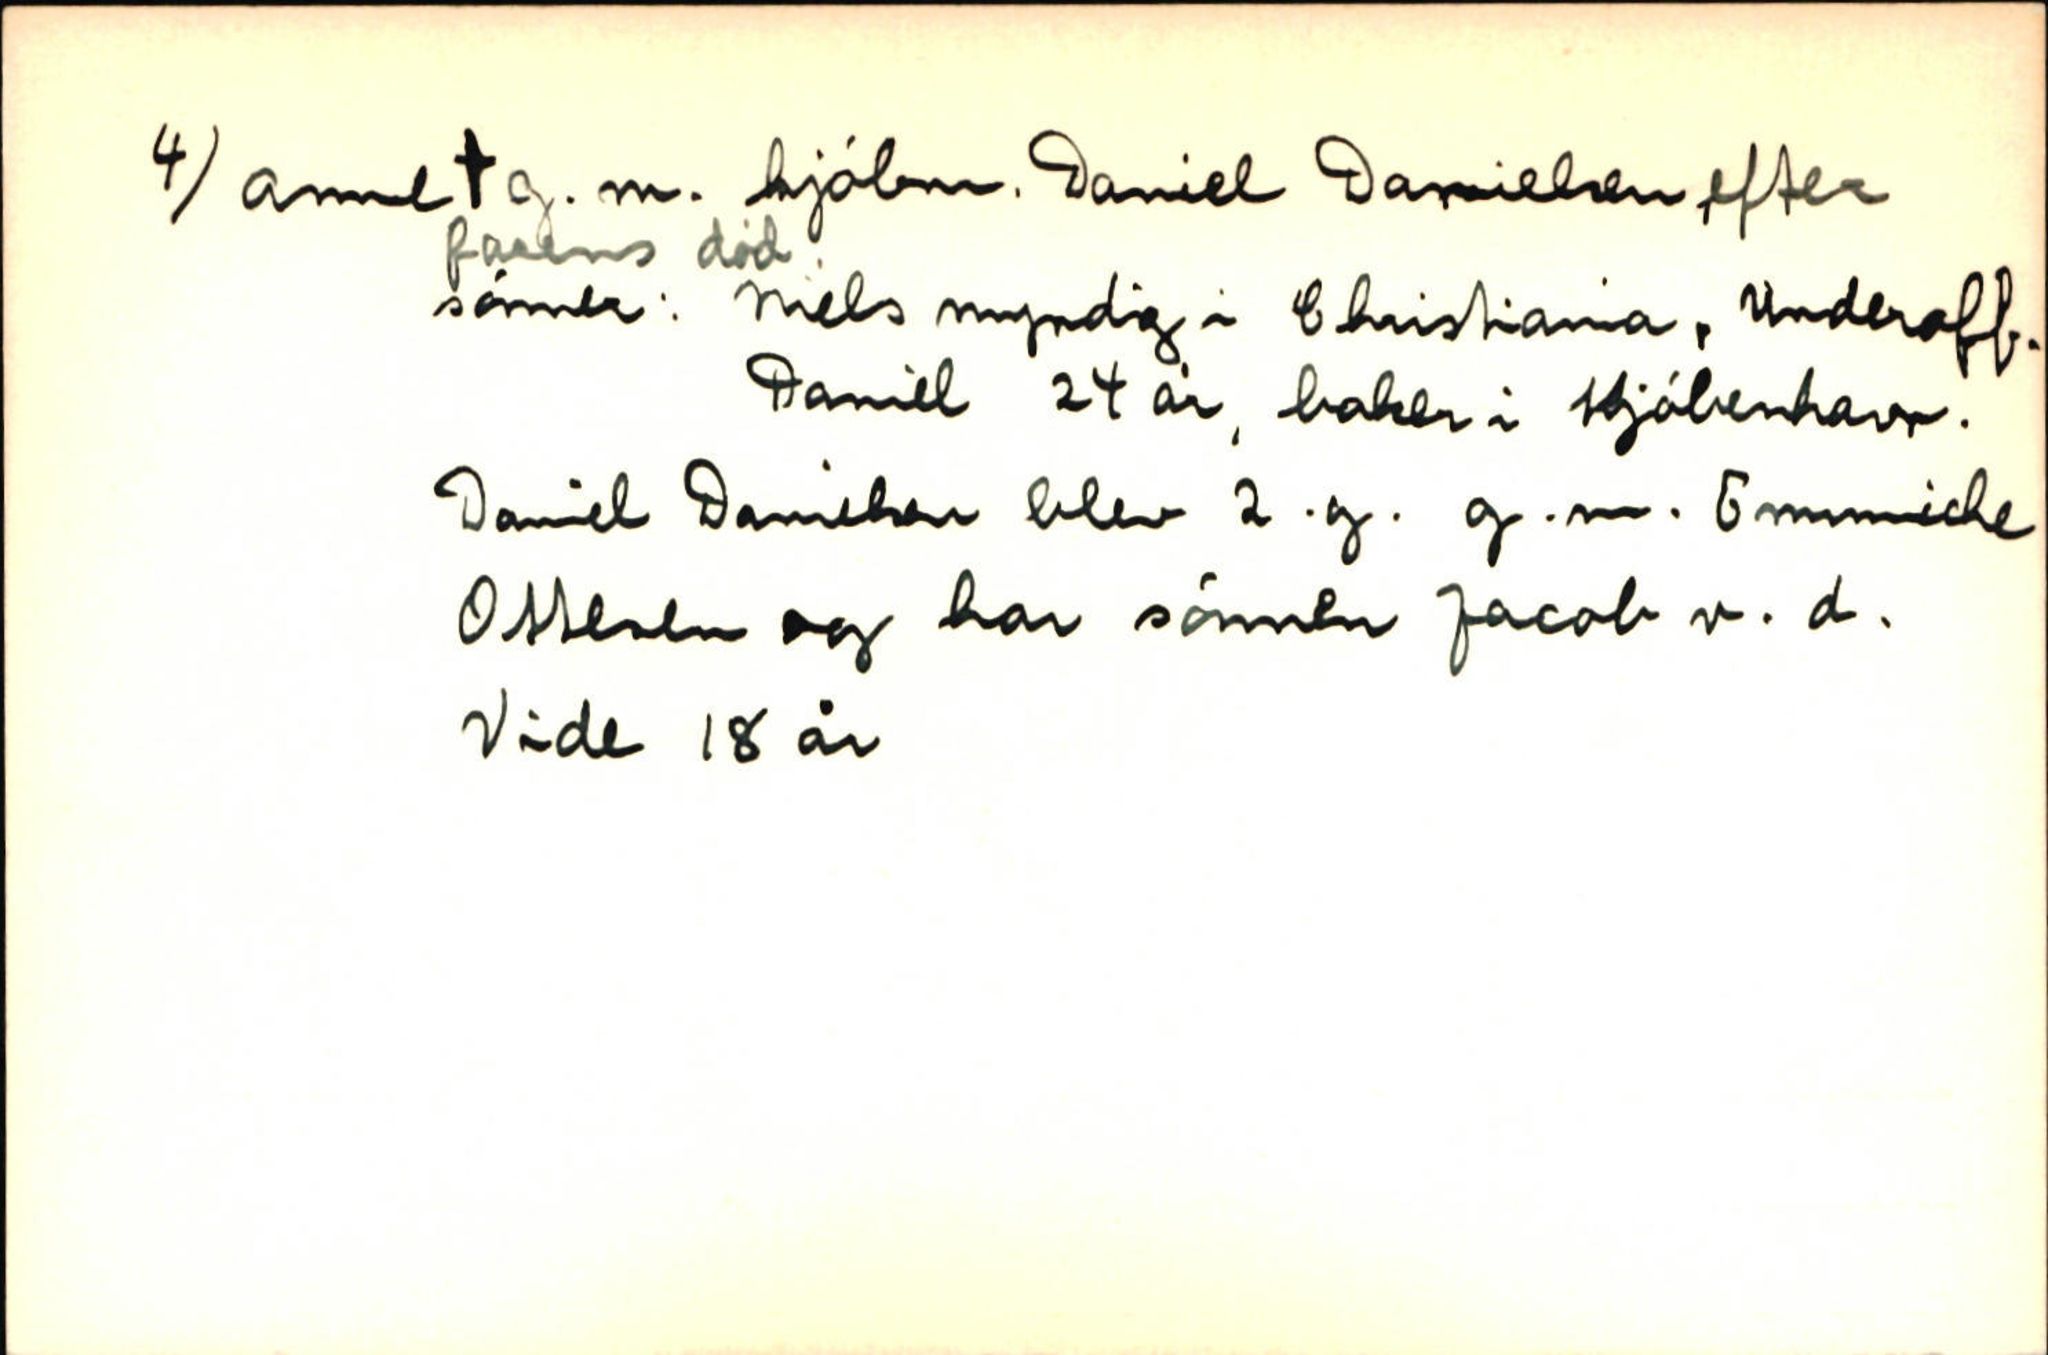 4) Anne † g. m. kjóbm. Daniel Danielsen, efter
farens död.
sónner: Niels myndig i Christiania, Underoff.
Daniel 24 år, baker i Kjóbenhavn.
Daniel Danielsen blev 2. g. g. m. Emmiche
Ottesen og har sónnen Jacob v. d.
Vide 18 år